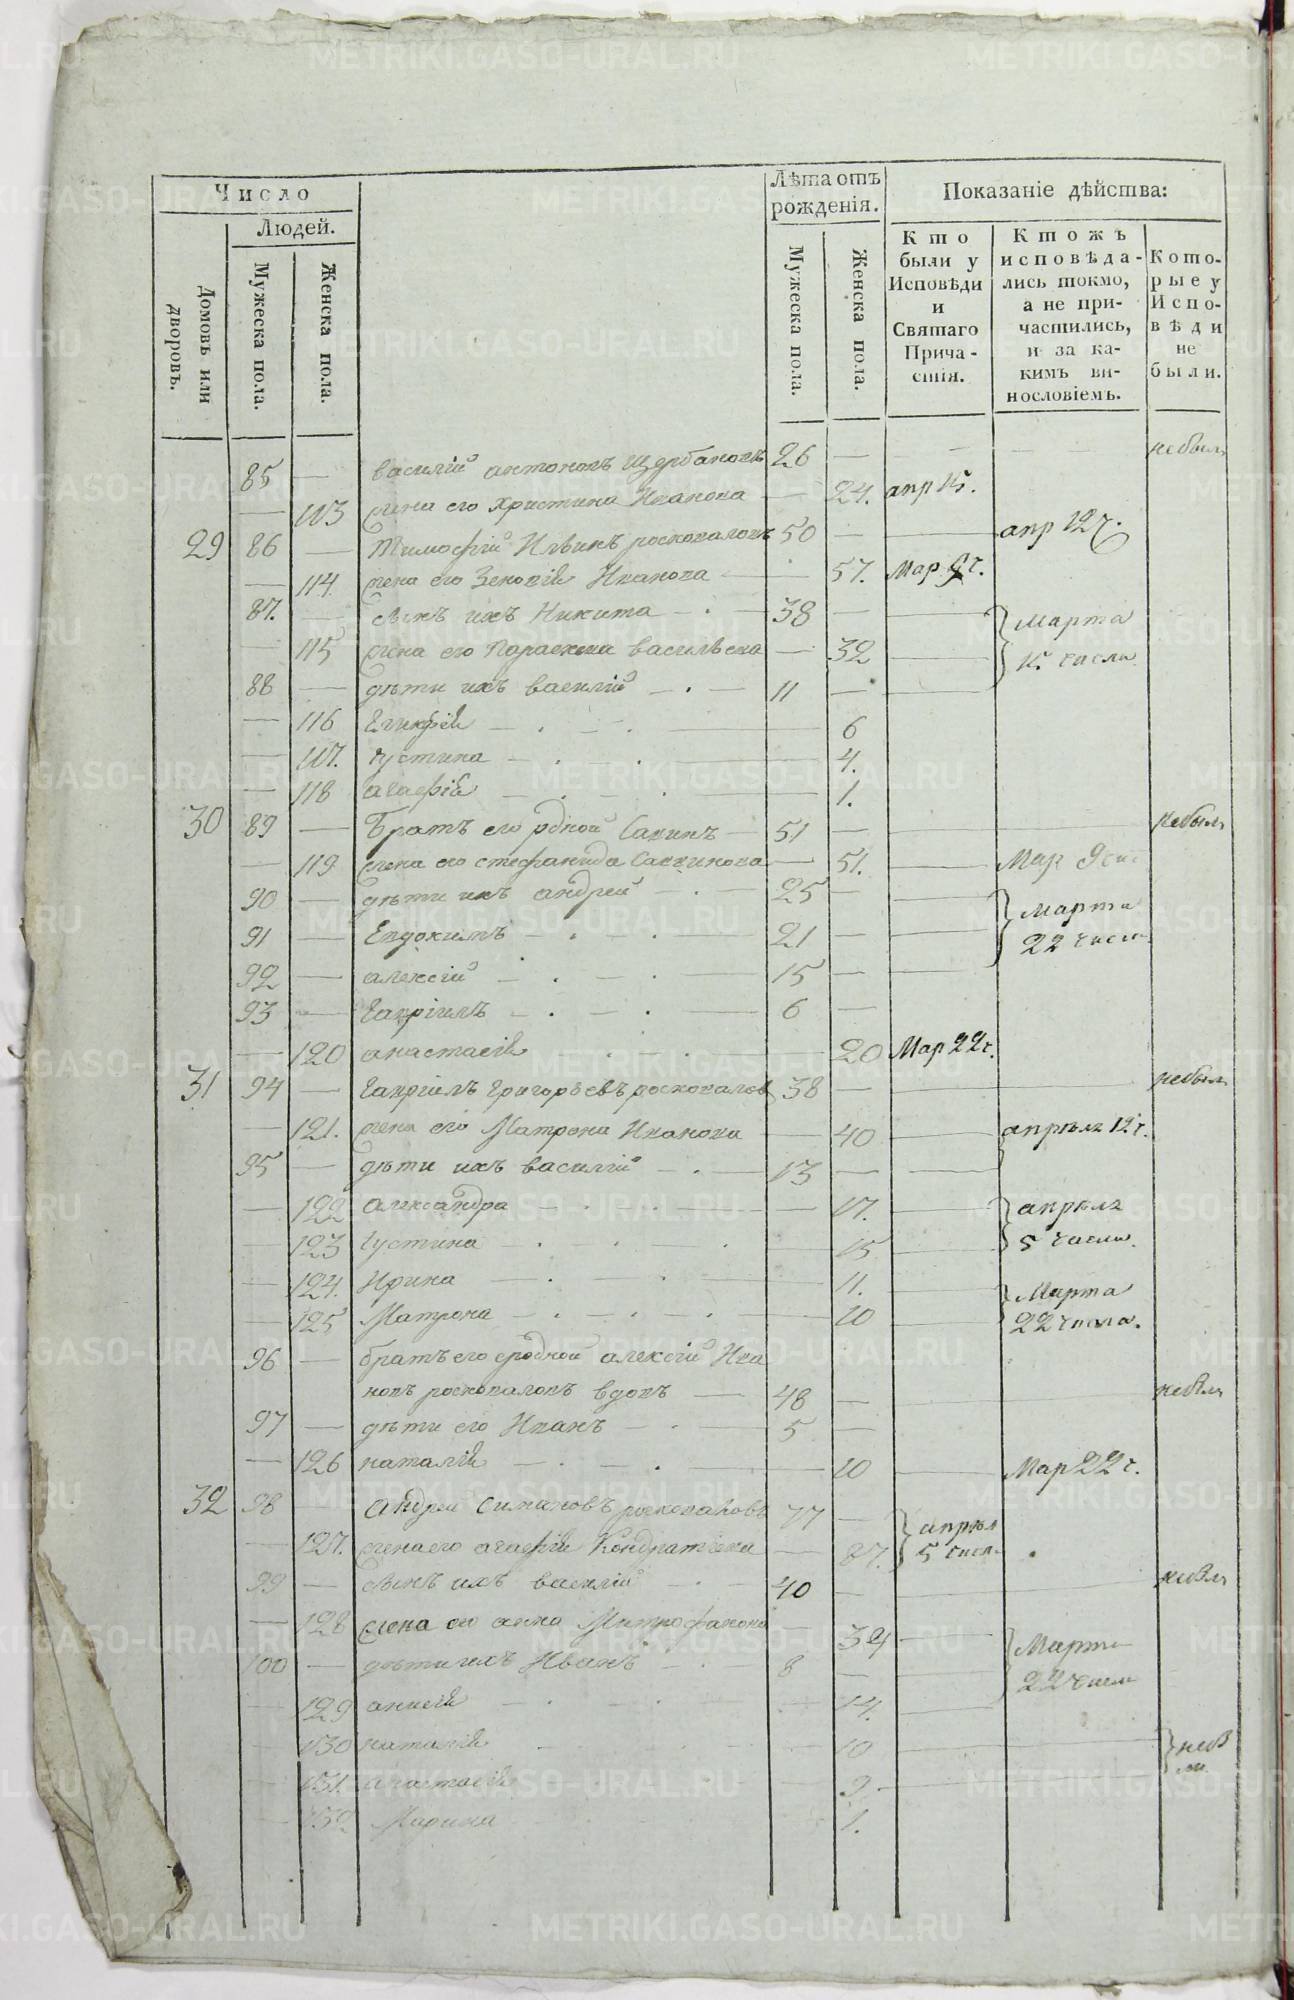 Число
Людей.
Домовъ или дворовъ.
Мужеска пола.
Женска пола.
Лѣта отъ рожденія.
Мужеска пола.
Женска пола.
Показаніе дѣйства:
Кто были у Исповѣди и Святаго Причастія.
Ктожъ исповѣдались токмо, а не причастились, и за какимъ винословіемъ.
Которые у Исповѣди не были.
85 — василій антоновъ Щербаковъ 26 — — — небылъ
— 113 жена его Христина Иванова — 24. апр 15.
29 86 — Тимофѣй Ильинъ росковаловъ 50 — — апр 12 ч.
— 114 жена его Зеновія Иванова — 57. Мар ч.
87. — сынъ ихъ Никита — 38 — — Марта
— 115 жена его Параскева васильева — 32 — 15 числа
88 — дѣти ихъ василій — 11 —
— 116 — 6
— 117. Густина — 4.
— 118 агафія — 1.
30 89 — Братъ его родной Савинъ — 51 — небылъ
— 119 жена его стефанида Саввинова — 51. — Мар 9
90 — дѣти ихъ андрей — 25 — — Марта
91 — Евдокимъ — 21 — — 22 числа
92 — алексій — 15 — —
93 — Гавріилъ — 6 —
— 120 анастасія — 20 Мар 22 ч.
31 94 — Гавріилъ григорьевъ росковаловъ 38 — небылъ
— 121. жена его Матрона Иванова — 40 — апрѣля 12 ч.
95 — дѣти ихъ василій — 13 — —
— 122 александра — 17. — апрѣля
— 123 Густина — 15 — 5 числа.
— 124. Ирина — 11. — Марта
— 125 Матрона — 10 — 22 числа.
96 — братъ его сродной алексій Ива
новъ росковаловъ вдовъ — 48 — небылъ
97 — дѣти его Иванъ — 5 —
— 126 наталія — 10 — Мар 22 ч.
32 98 — андрей Симановъ росковаловъ 77 — апрѣл
— 127. жена его агафія Кондратіева — 87. 5 числ.
99 — сынъ ихъ василій — 40 — небылъ
— 128 жена его анна Митрофанова — 34 — Марта
100 — дѣти ихъ Иванъ — 8 — — 22 числ
— 129 анисія — 14. —
— 130 наталія — 10 —
— 131. анастасія — 2. —
— 132 Марина 1.
METRIKI.GASO-URAL.RU